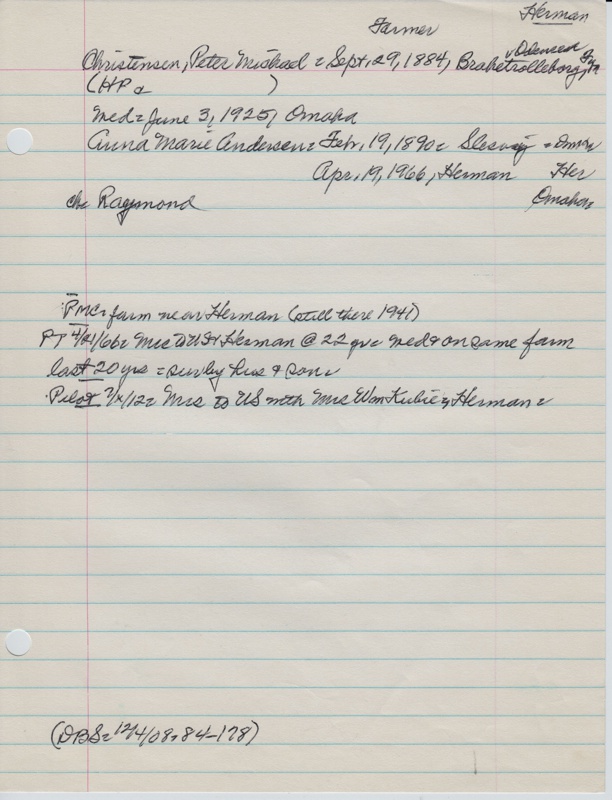 Herman
Farmer
Christensen, Peter Michael = Sept. 29, 1884, Brahetrolleborg, Fyn
Odensed
(HP 2 )
Med = June 3, 1925, Omaha
Anna Marie Andersen = Feb. 19, 1890 = Slesvig = Omaha
Apr. 19, 1966, Herman Her
Omaha =
ch = Raymond
PMC = farm near Herman (still there 1941)
PT 4/21/66 = Mrs to US & Herman @ 22 yr = med & on same farm
last 20 yrs = sur by hus & son =
Pilot 12 = Mrs to US with Mrs Wm Kubie, Herman =
(DBS = 12/4/08, 84-178)